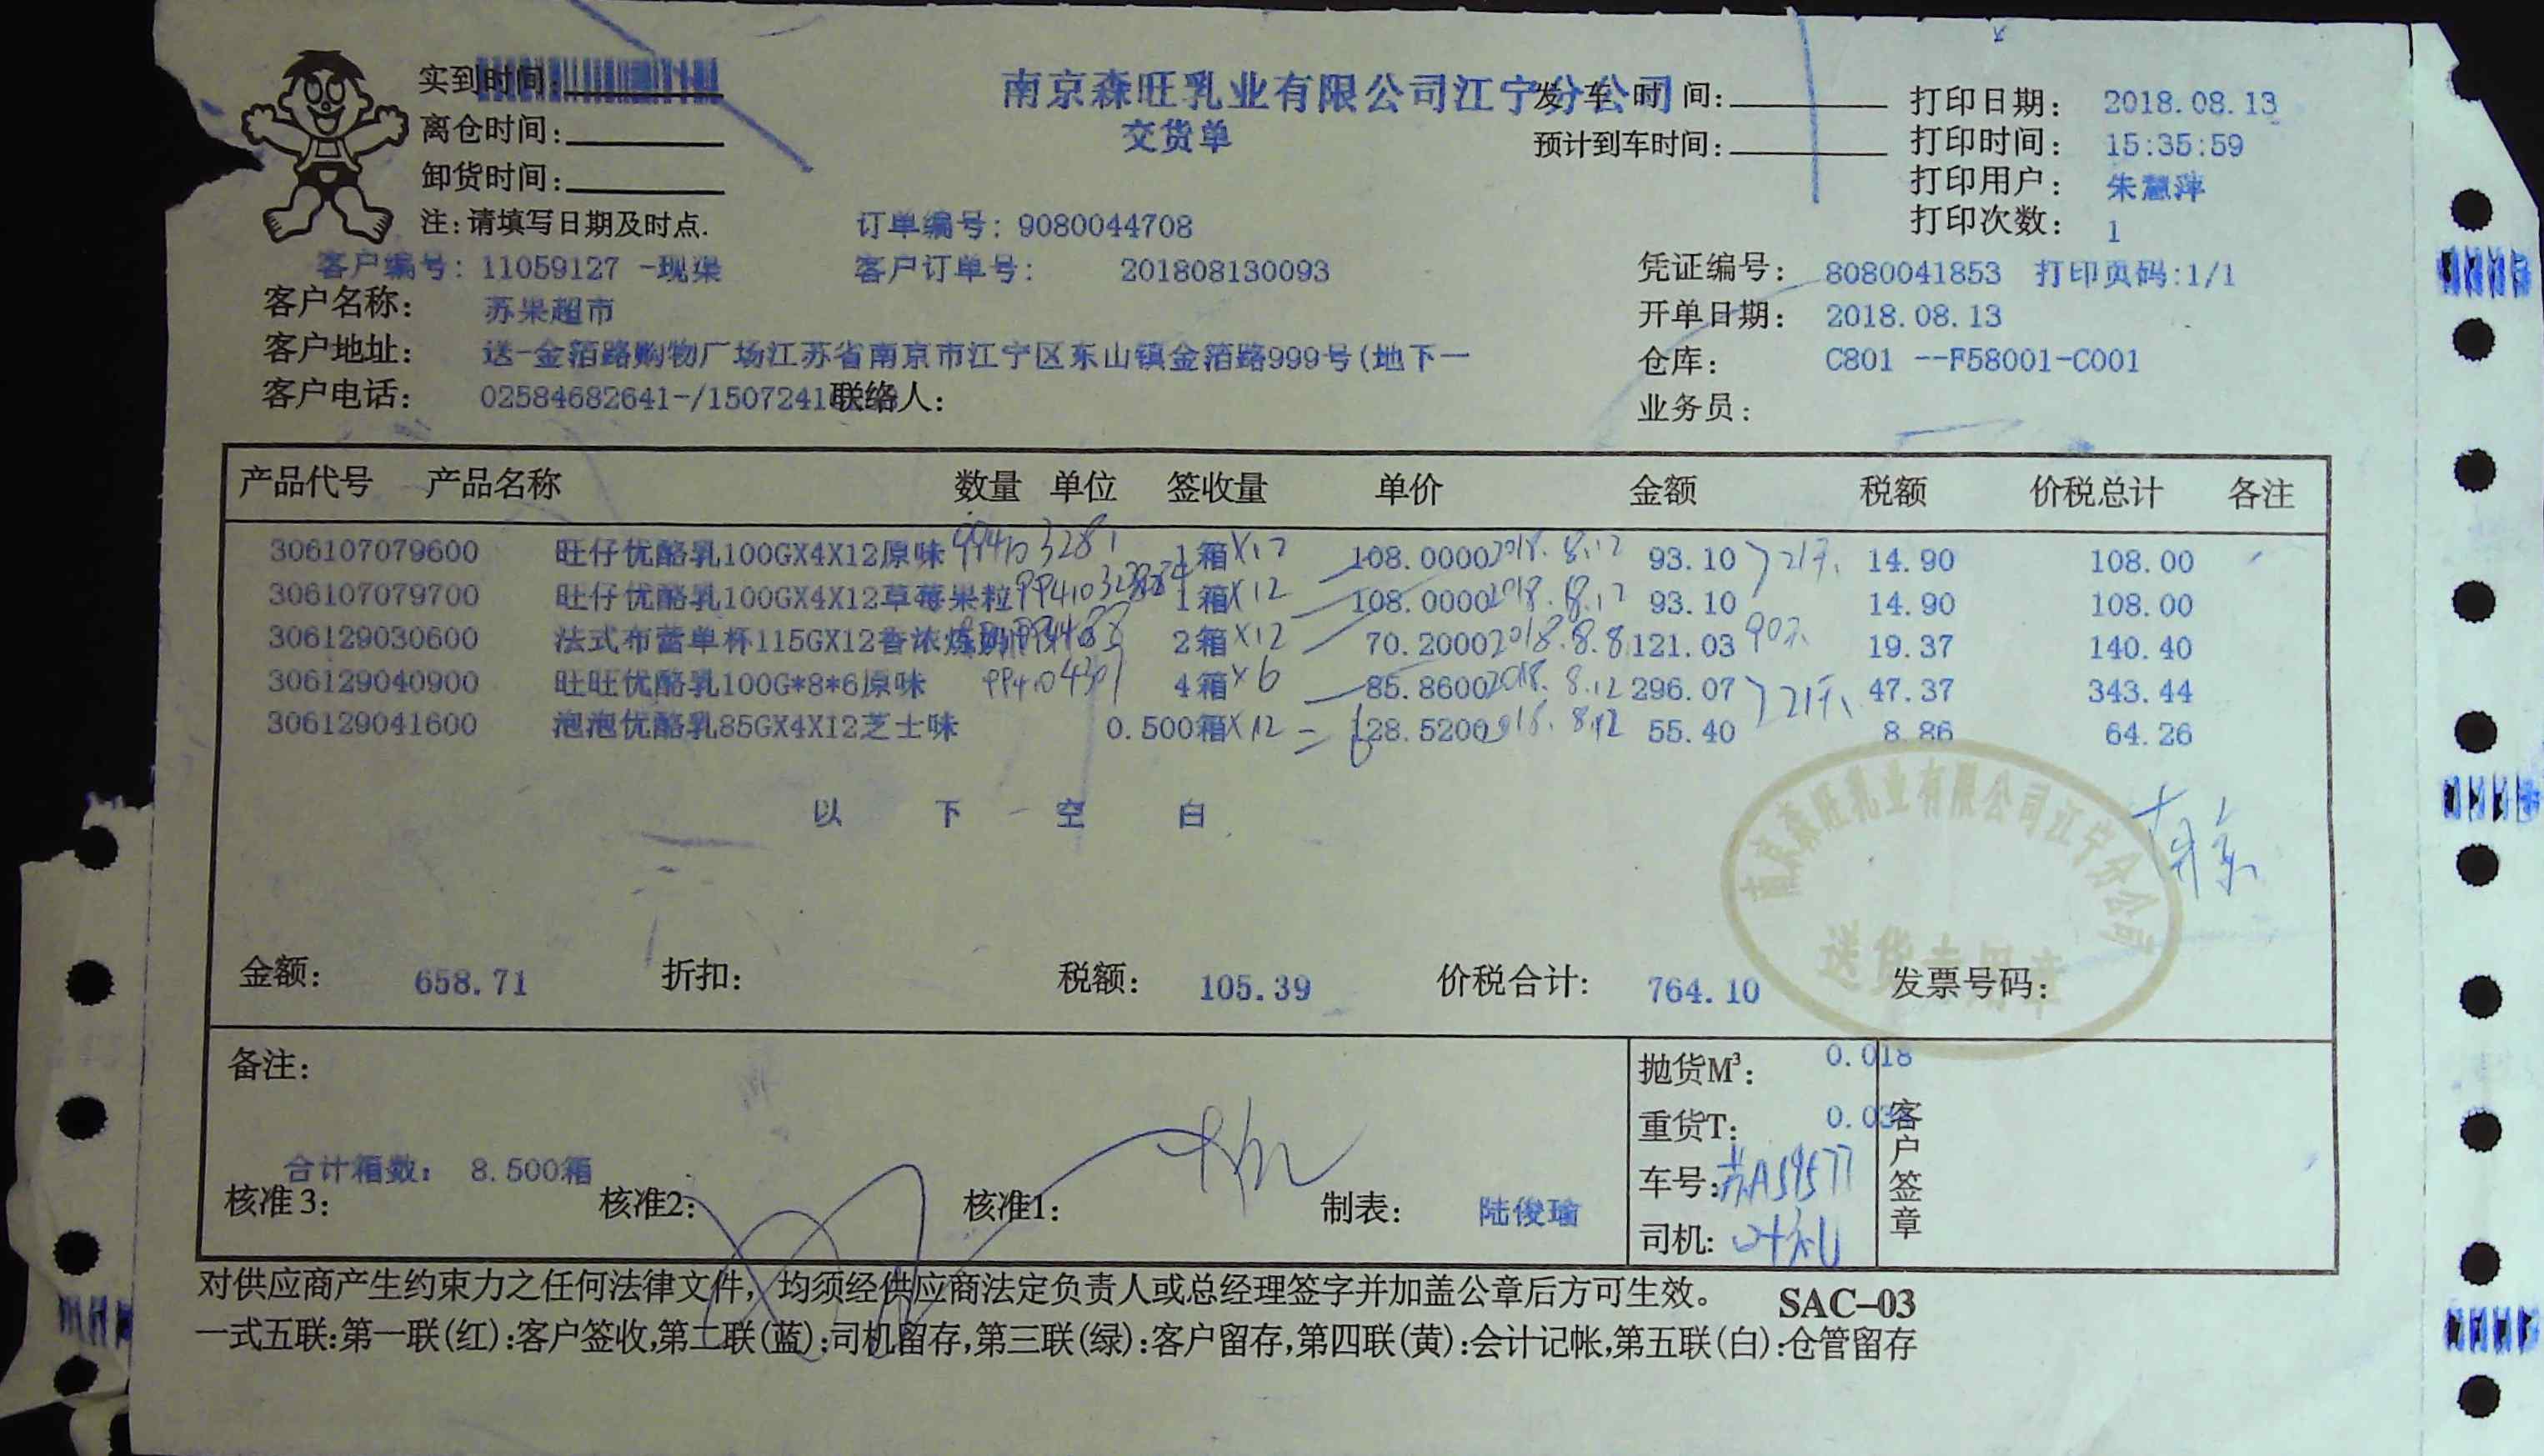 实到时间:
南京森旺乳业有限公司江宁分公司
发车时间:
打印日期: 2018.08.13
离仓时间:
交货单
预计到车时间:
打印时间: 15:35:59
卸货时间:
打印用户: 朱慧萍
注:请填写日期及时点.
订单编号: 9080044708
打印次数: 1
客户编号: 11059127 -现渠
客户订单号: 201808130093
凭证编号: 8080041853 打印页码:1/1
客户名称: 苏果超市
开单日期: 2018.08.13
客户地址: 送-金箔路购物广场江苏省南京市江宁区东山镇金箔路999号(地下一
仓库: C801 --F58001-C001
客户电话: 02584682641-/1507241
联络人:
业务员:
产品代号 产品名称 数量 单位 签收量 单价 金额 税额 价税总计 各注
306107079600 旺仔优酪乳100GX4X12原味 994103281 1箱X12 108.0000 2018.8.12 93.10 21天 14.90 108.00
306107079700 旺仔优酪乳100GX4X12草莓果粒 1箱X12 108.0000 2018.8.12 93.10 14.90 108.00
306129030600 法式布蕾单杯115GX12香浓炼奶 2箱X12 70.2000 2018.8.8 121.03 90天 19.37 140.40
306129040900 旺旺优酪乳100G*8*6原味 994104301 4箱X6 85.8600 2018.8.12 296.07 21天 47.37 343.44
306129041600 泡泡优酪乳85GX4X12芝士味 0.500箱X12 = 6 128.5200 8.12 55.40 8.86 64.26
以下空白
南京森旺乳业有限公司江宁分公司
送货专用章
金额: 658.71 折扣: 税额: 105.39 价税合计: 764.10 发票号码:
备注:
抛货M³: 0.018
重货T: 0.03
客户签章
合计箱数: 8.500箱
车号: 苏A59577
核准3: 核准2: 核准1: 制表: 陆俊瑜
司机:
对供应商产生约束力之任何法律文件,均须经供应商法定负责人或总经理签字并加盖公章后方可生效。 SAC-03
一式五联:第一联(红):客户签收,第二联(蓝):司机留存,第三联(绿):客户留存,第四联(黄):会计记帐,第五联(白):仓管留存